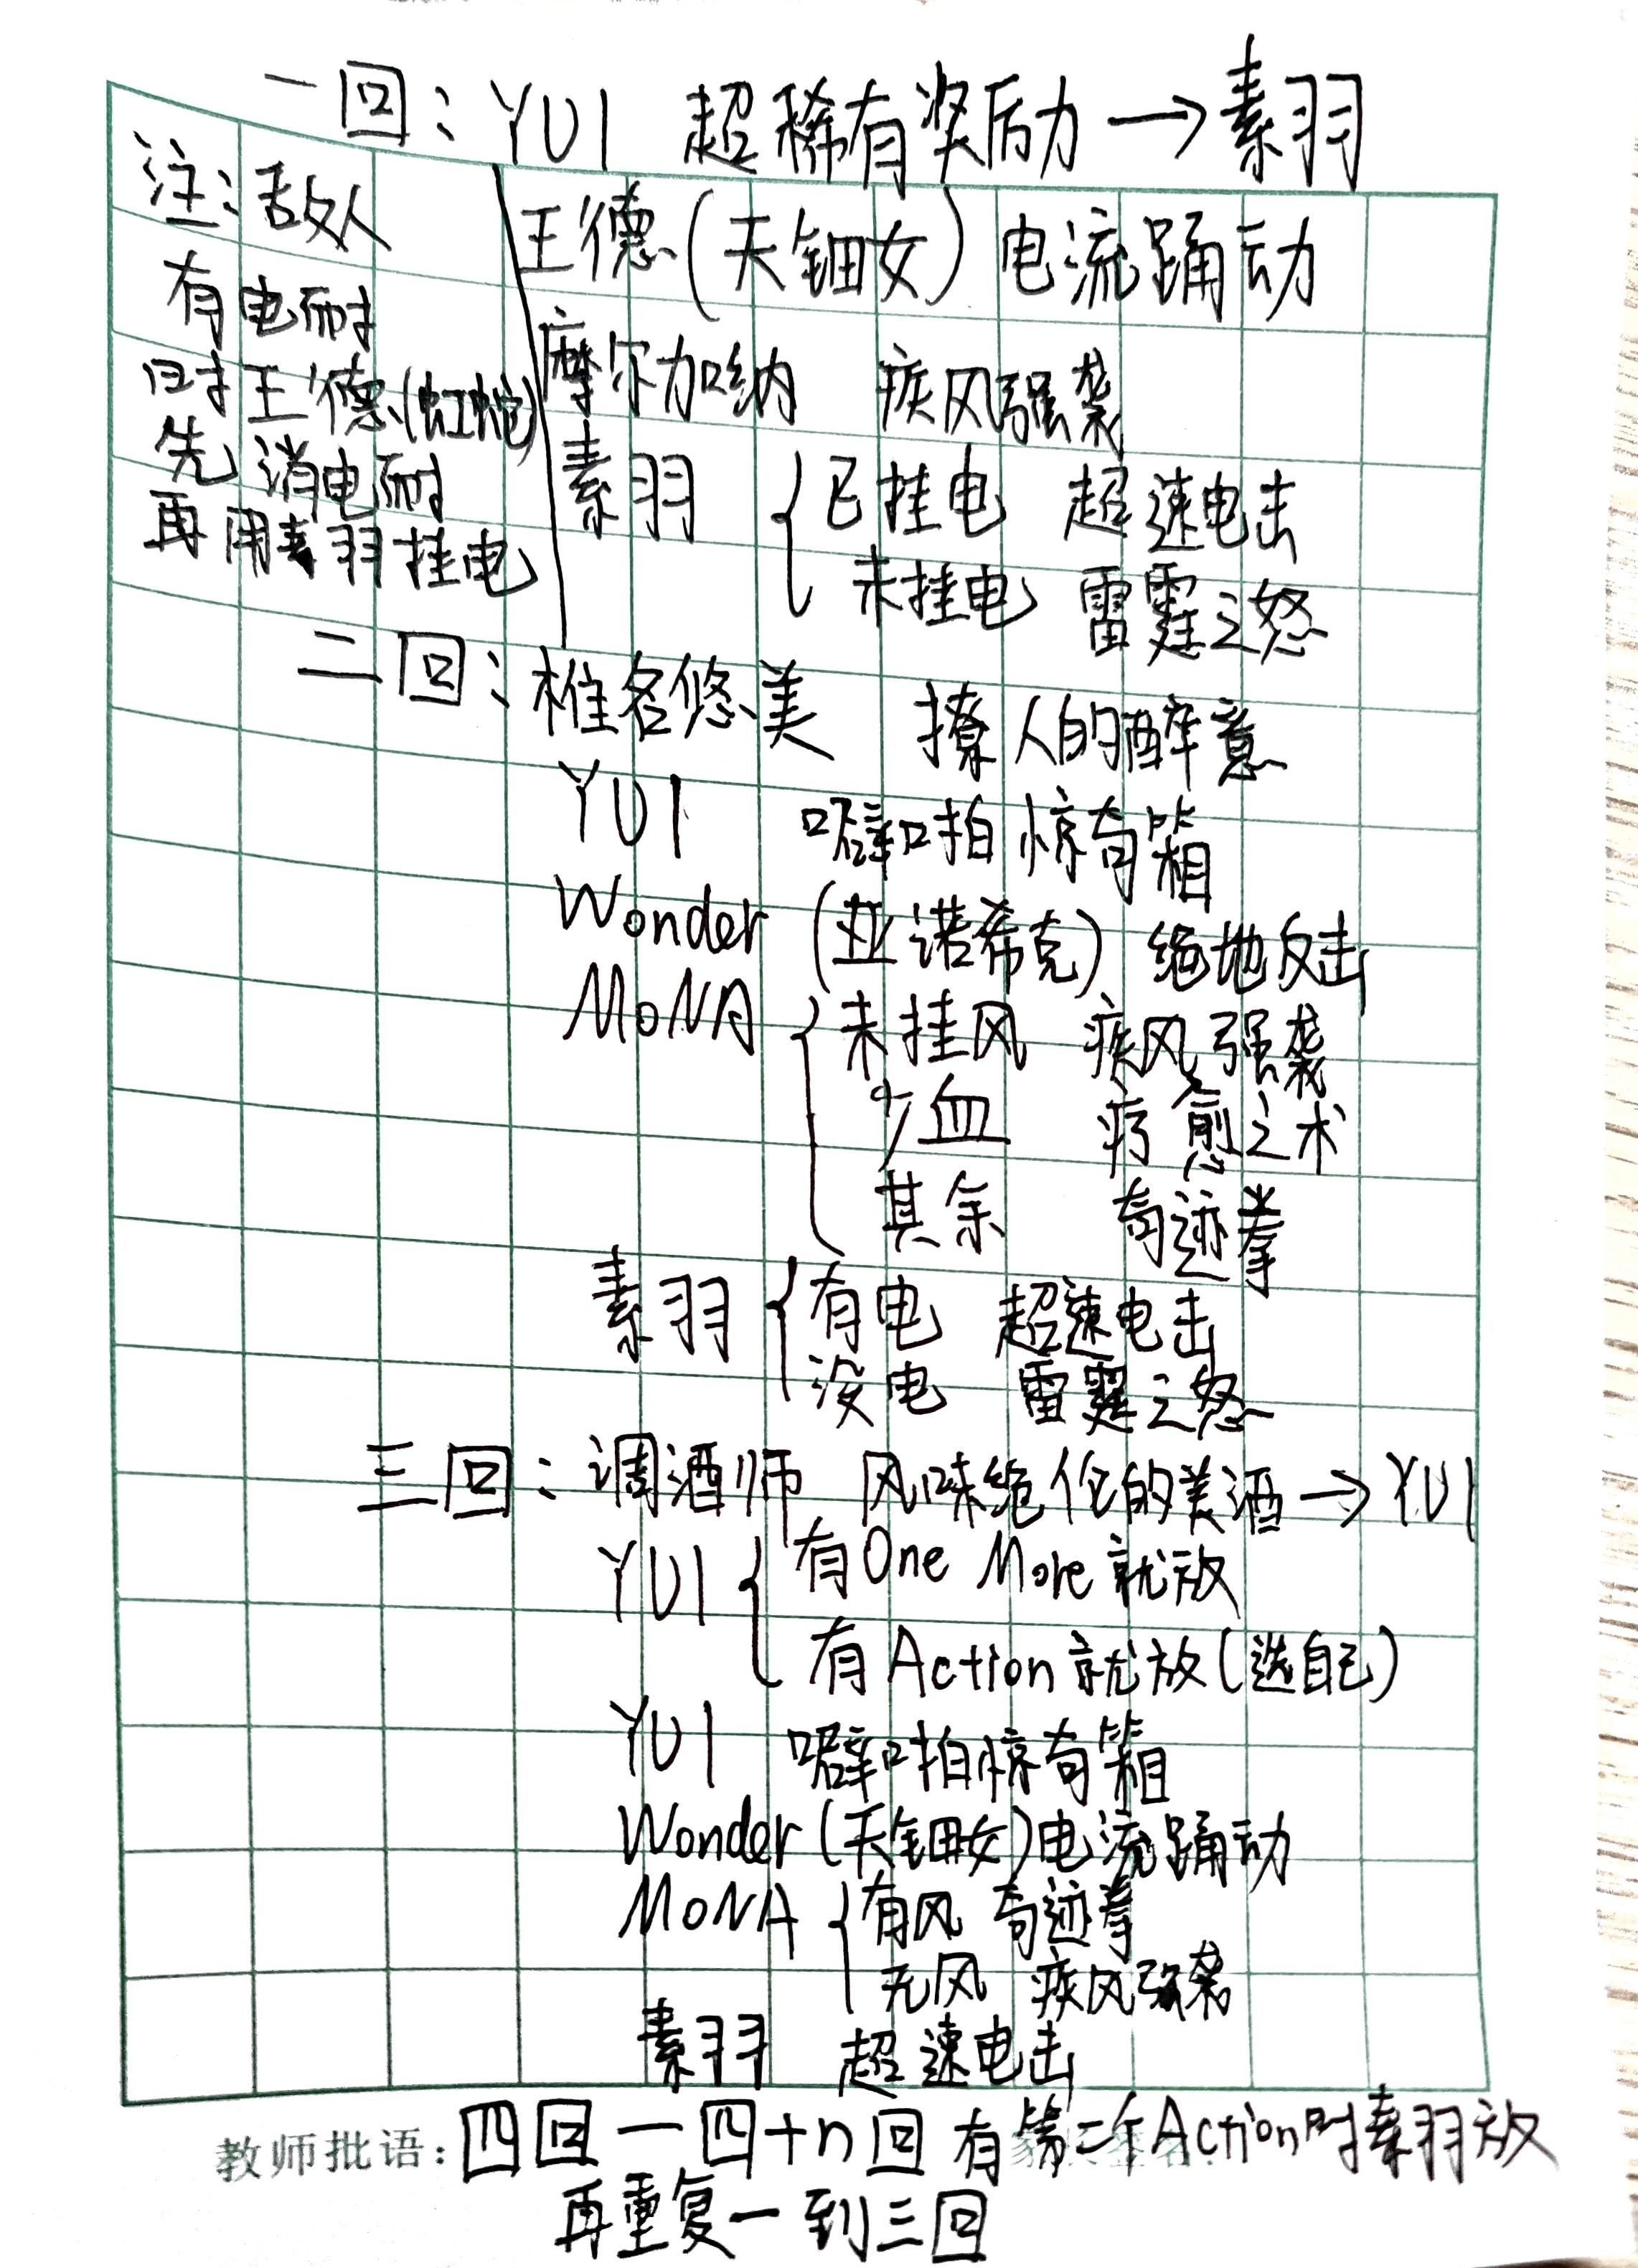 一回：YUI 超稀有奖励→素羽
注：敌人
有电耐
时王德(虹蛇)
先消电耐
再用素羽挂电
王德(天钿女)电流踊动
摩尔加呐 疾风强袭
素羽 已挂电 超速电击
未挂电 雷霆之怒
二回：椎名悠美 撩人的醉意
YUI 噼啪惊奇箱
Wonder (亚诺希克) 绝地反击
MoNA 未挂风 疾风强袭
少血 疗愈之术
其余 奇迹拳
素羽 有电 超速电击
没电 雷霆之怒
三回：调酒师 风味绝伦的美酒→YUI
YUI 有One More就放
有Action就放(选自己)
YUI 噼啪惊奇箱
Wonder(天钿女)电流踊动
MoNA 有风 奇迹拳
无风 疾风强袭
素羽 超速电击
教师批语：四回一四+n回 有第二个Action时素羽放
再重复一到三回